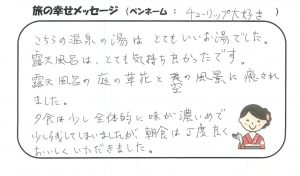 旅の幸せメッセージ (ペンネーム : チューリップ大好き )
こちらの温泉の湯は とてもいいお湯でした。
露天風呂は、とても気持ち良かったです。
露天風呂の庭の草花と裏の風景に癒され
ました。
夕食は少し全体的に味が濃いめで
少し残してしまいましたが、朝食は丁度良く
おいしくいただきました。